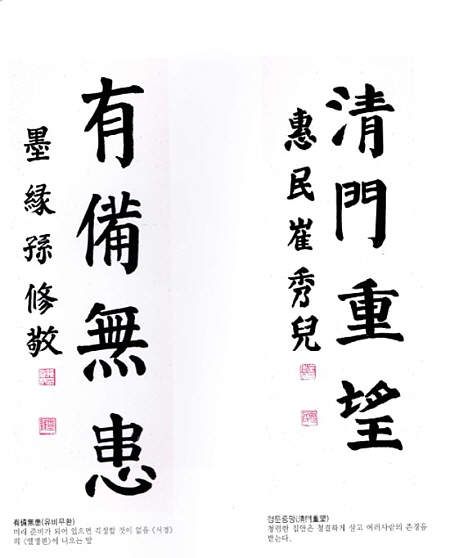 清門重望
惠民崔秀兒
有備無患
墨緣孫修敬
有備無患(유비무환)
미래 준비가 되어 있으면 걱정할 것이 없음 《서경》
의 《열명편》에 나오는 말
청문중망(清門重望)
청렴한 집안은 청결하게 살고 여러사람의 존경을
받는다.